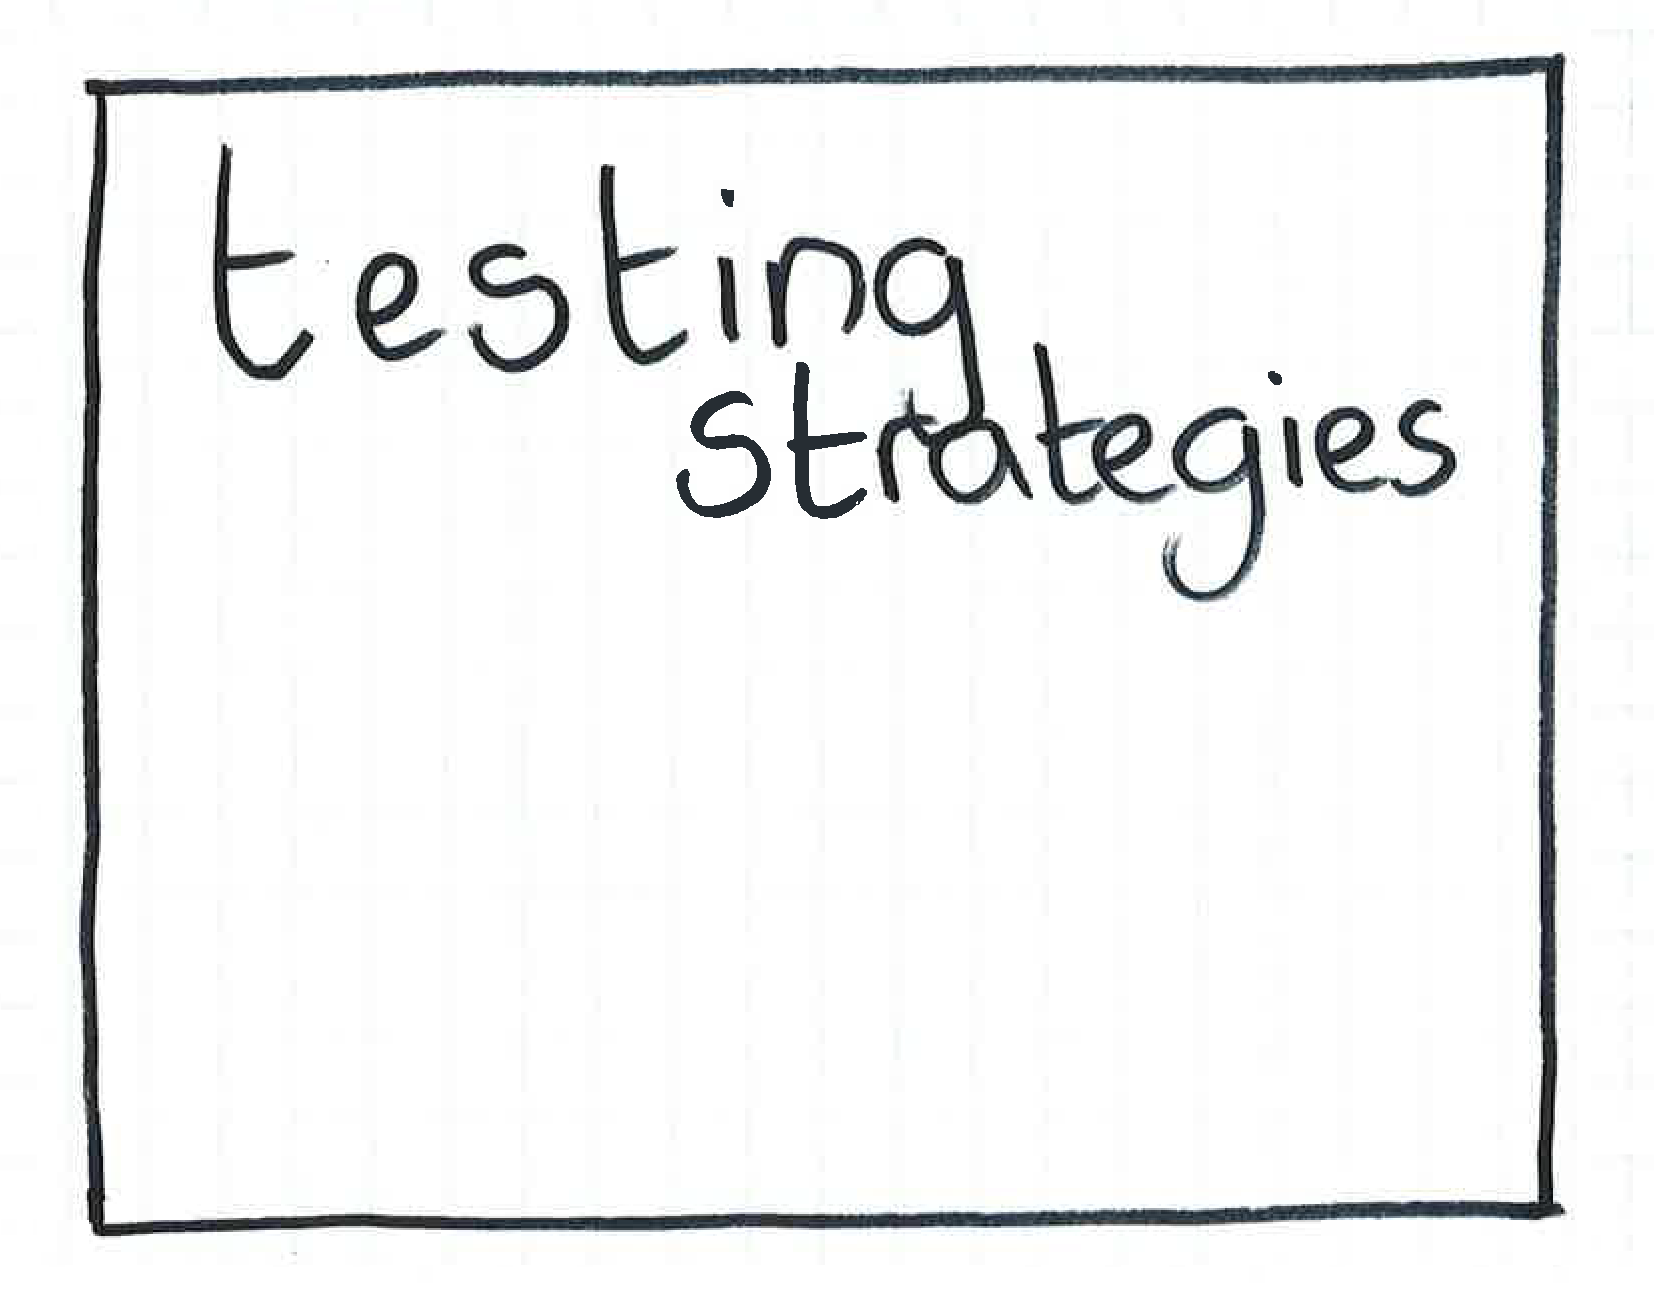 testing
strategies